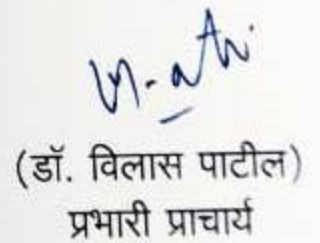 (डॉ. विलास पाटील)
प्रभारी प्राचार्य